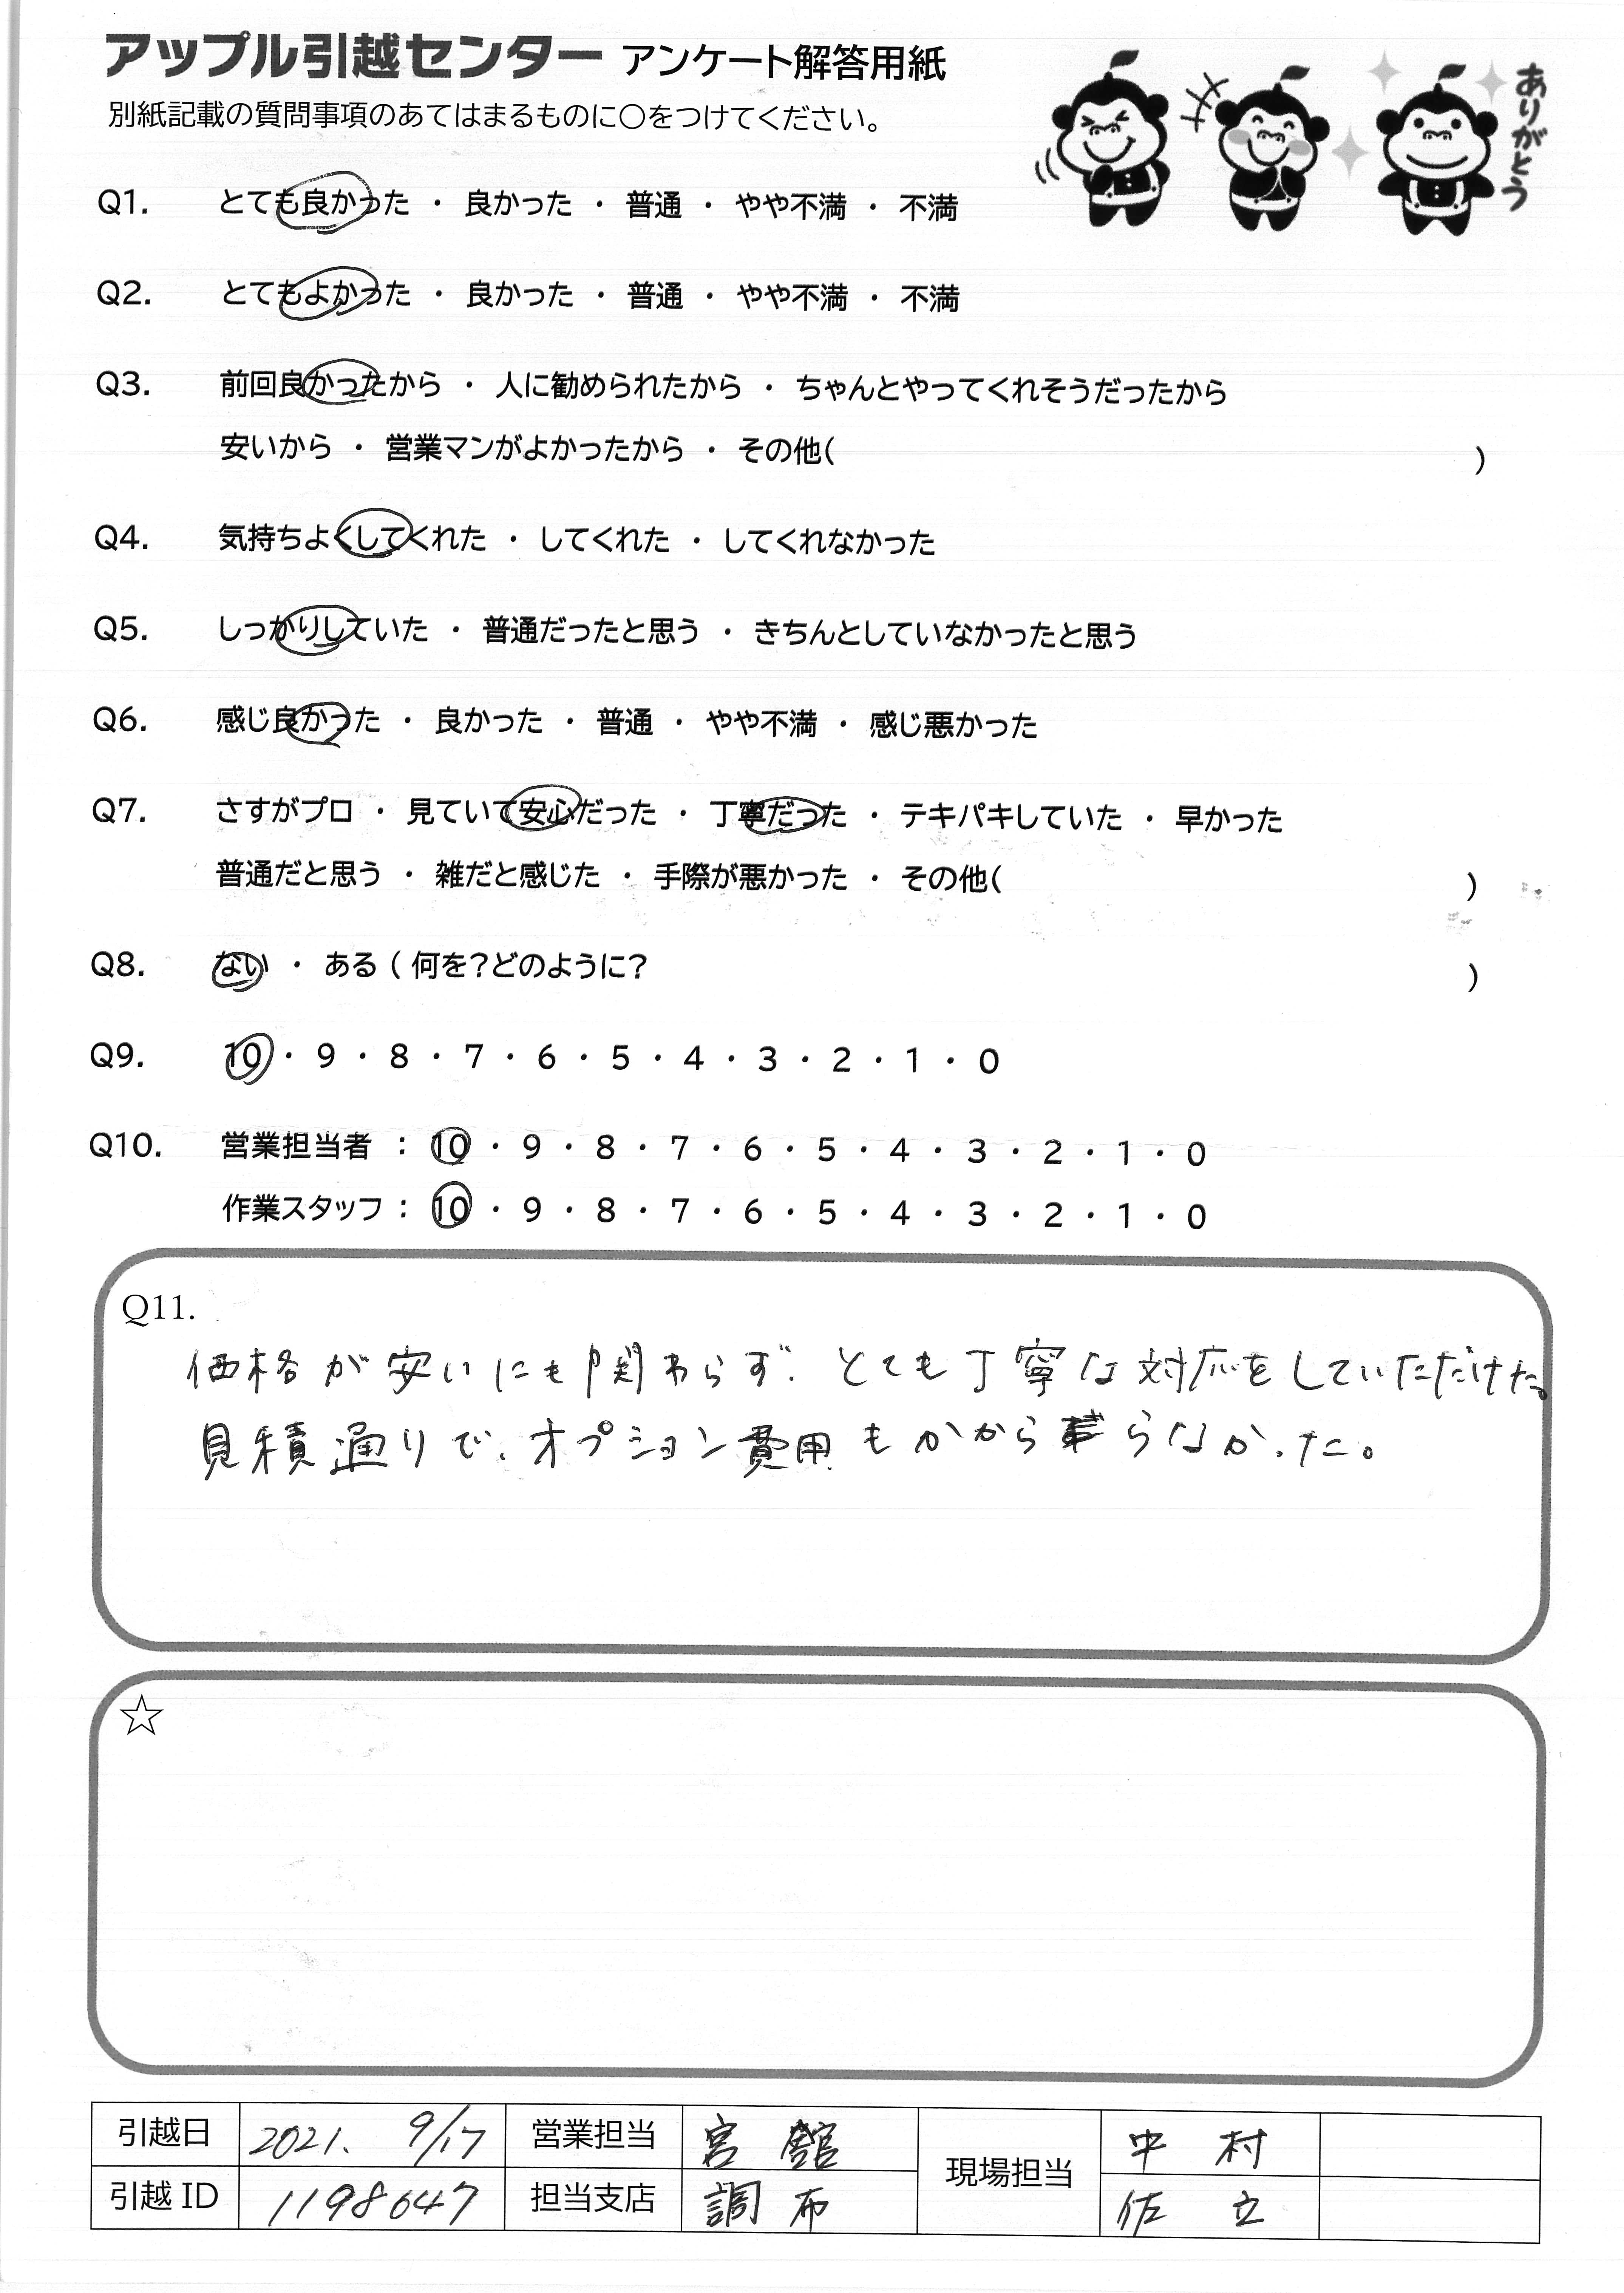 アップル引越センター アンケート解答用紙
別紙記載の質問事項のあてはまるものに○をつけてください。
ありがとう
Q1. とても良かった ・ 良かった ・ 普通 ・ やや不満 ・ 不満
Q2. とてもよかった ・ 良かった ・ 普通 ・ やや不満 ・ 不満
Q3. 前回良かったから ・ 人に勧められたから ・ ちゃんとやってくれそうだったから
安いから ・ 営業マンがよかったから ・ その他( )
Q4. 気持ちよくしてくれた ・ してくれた ・ してくれなかった
Q5. しっかりしていた ・ 普通だったと思う ・ きちんとしていなかったと思う
Q6. 感じ良かった ・ 良かった ・ 普通 ・ やや不満 ・ 感じ悪かった
Q7. さすがプロ ・ 見ていて安心だった ・ 丁寧だった ・ テキパキしていた ・ 早かった
普通だと思う ・ 雑だと感じた ・ 手際が悪かった ・ その他( )
Q8. ない ・ ある ( 何を?どのように? )
Q9. 10 ・ 9 ・ 8 ・ 7 ・ 6 ・ 5 ・ 4 ・ 3 ・ 2 ・ 1 ・ 0
Q10. 営業担当者 : 10 ・ 9 ・ 8 ・ 7 ・ 6 ・ 5 ・ 4 ・ 3 ・ 2 ・ 1 ・ 0
作業スタッフ : 10 ・ 9 ・ 8 ・ 7 ・ 6 ・ 5 ・ 4 ・ 3 ・ 2 ・ 1 ・ 0
Q11.
価格が安いにも関わらず、とても丁寧な対応をしていただけた。
見積通りで、オプション費用もかから らなかった。
☆
引越日 2021. 9/17 営業担当 宮舘 現場担当 中村
引越 ID 1198647 担当支店 調布 佐立